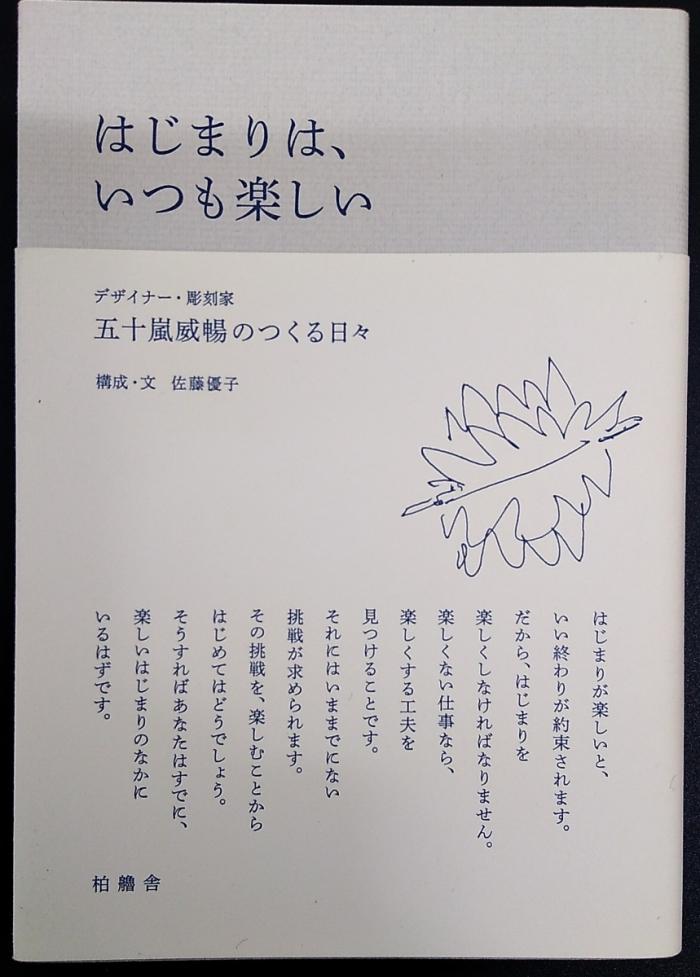 はじまりは、
いつも楽しい
デザイナー・彫刻家
五十嵐威暢のつくる日々
構成・文　佐藤優子
はじまりが楽しいと、
いい終わりが約束されます。
だから、はじまりを
楽しくしなければなりません。
楽しくない仕事なら、
楽しくする工夫を
見つけることです。
それにはいままでにない
挑戦が求められます。
その挑戦を、楽しむことから
はじめてはどうでしょう。
そうすればあなたはすでに、
楽しいはじまりのなかに
いるはずです。
柏艪舎